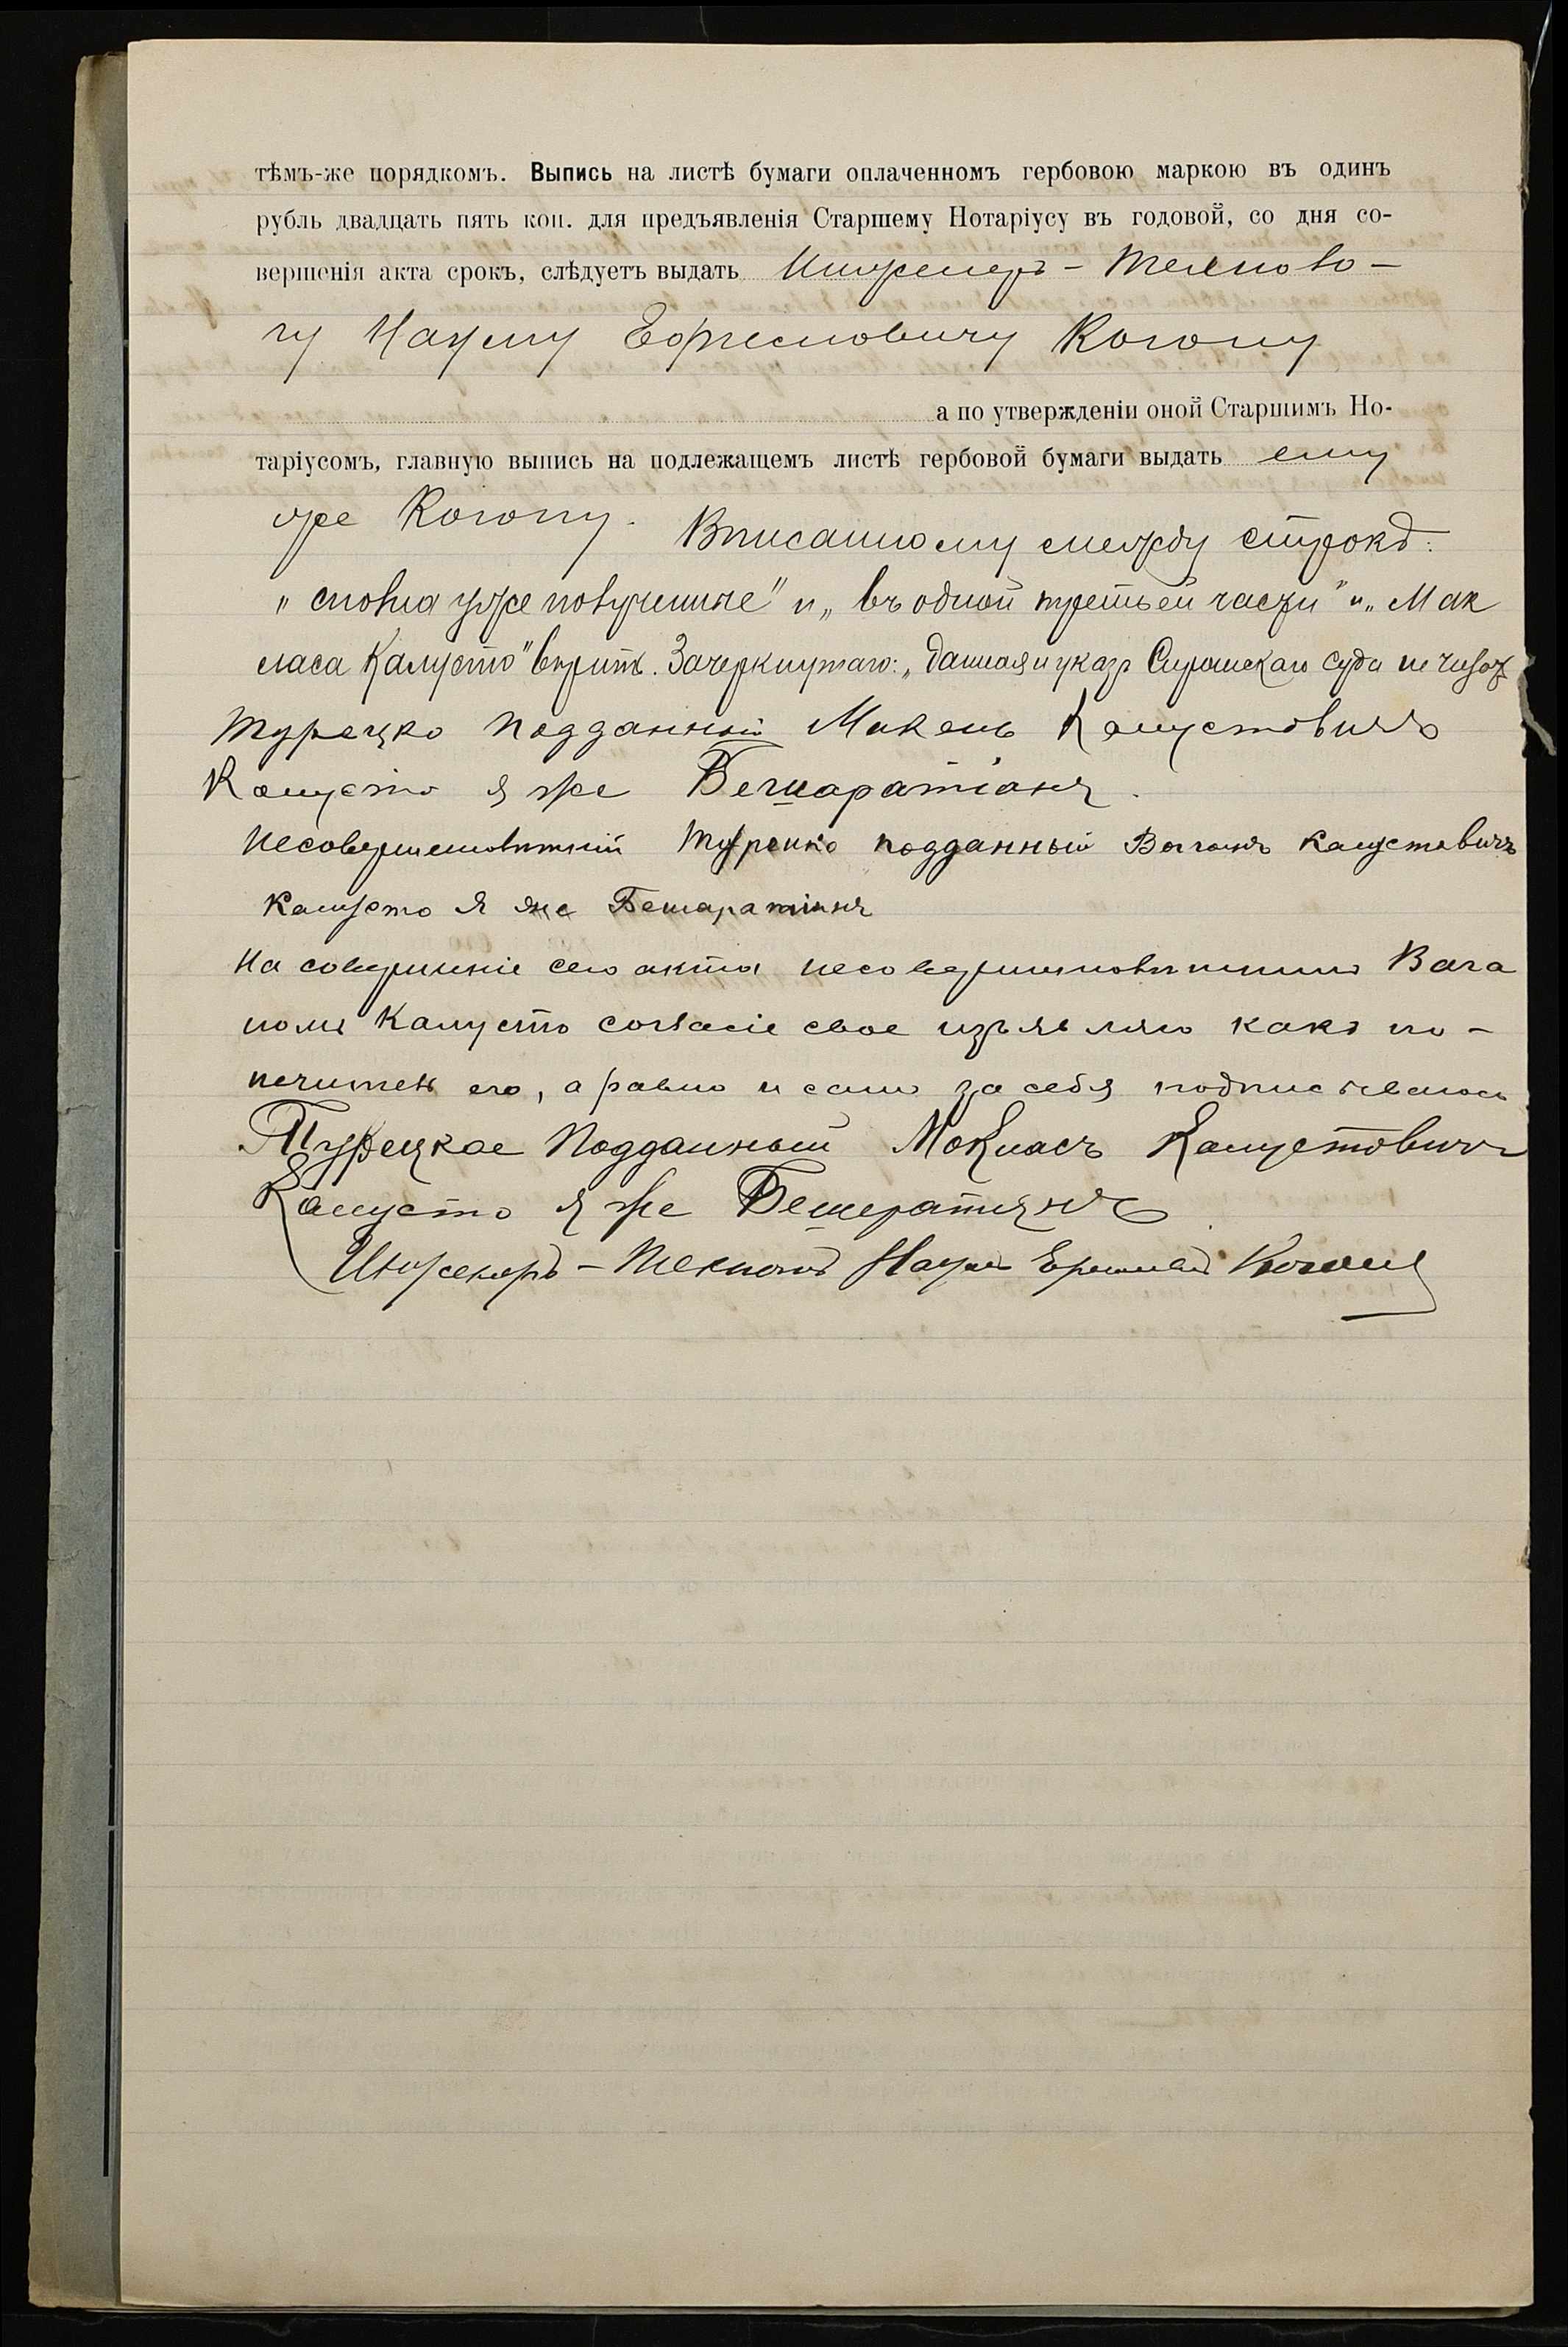 тѣмъ-же порядкомъ. Выпись на листѣ бумаги оплаченномъ гербовою маркою въ одинъ
рубль двадцать пять коп. для предъявленія Старшему Нотаріусу въ годовой, со дня со-
вершенія акта срокъ, слѣдуетъ выдать Инженеръ-Техноло-
гу Науму Когону
а по утвержденіи оной Старшимъ Но-
таріусомъ, главную выпись на подлежащемъ листѣ гербовой бумаги выдать ему
же Когону. Вписанному между строкъ:
„ уже " и „ въ одной третьей части " и „ Мак
Калусто" вѣрить. Зачеркнутаго: „ данная и указъ суда не
Турецко подданный Калустовичъ
Калусто я же Бешаратіанъ.
Несовершеннолѣтній Турецко подданный Ваганъ Калустовичъ
Калусто я же Бешаратіанъ
На совершеніе сего акта несовершеннолѣтнимъ Вага
номъ Калусто согласіе свое изъявляю какъ по-
печитель его, а равно и самъ за себя подписываюсь
Турецкое Подданный Калустовичъ
Калусто я же Бешератянъ
Инженеръ-Технологъ Наумъ Когонъ